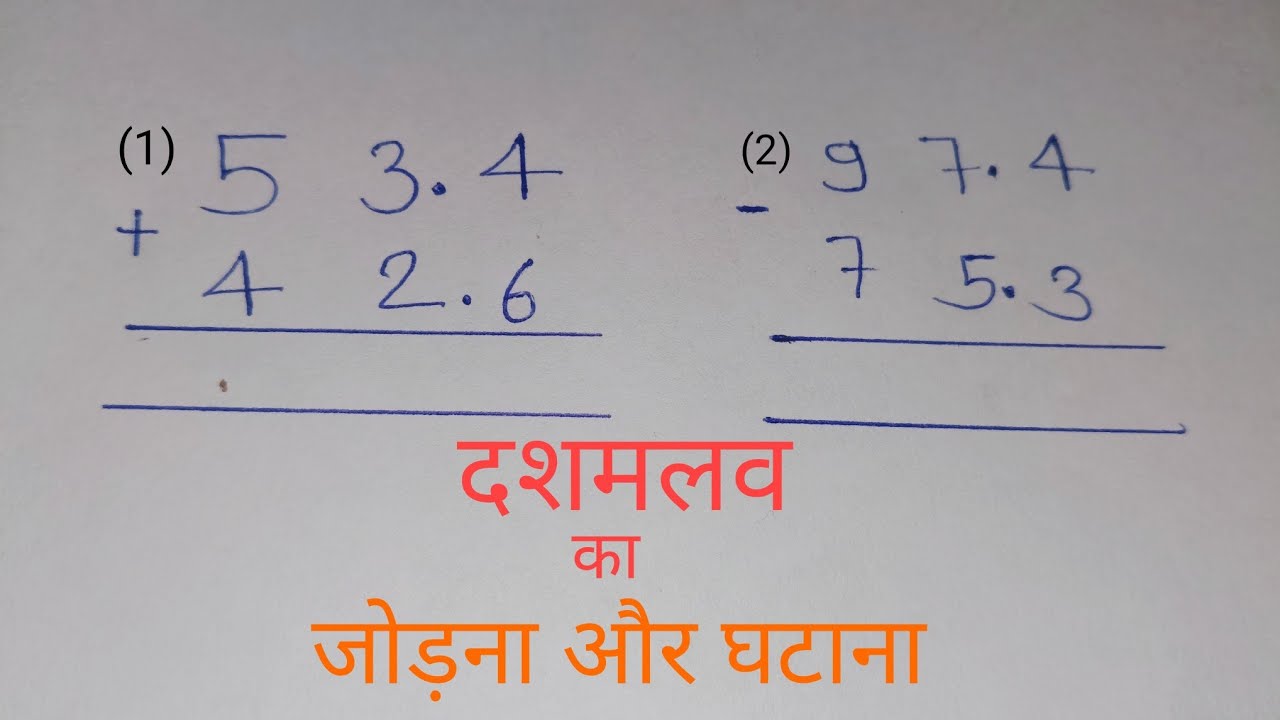 (1) 5 3.4
+
4 2.6
(2) 9 7.4
-
7 5.3
दशमलव
का
जोड़ना और घटाना